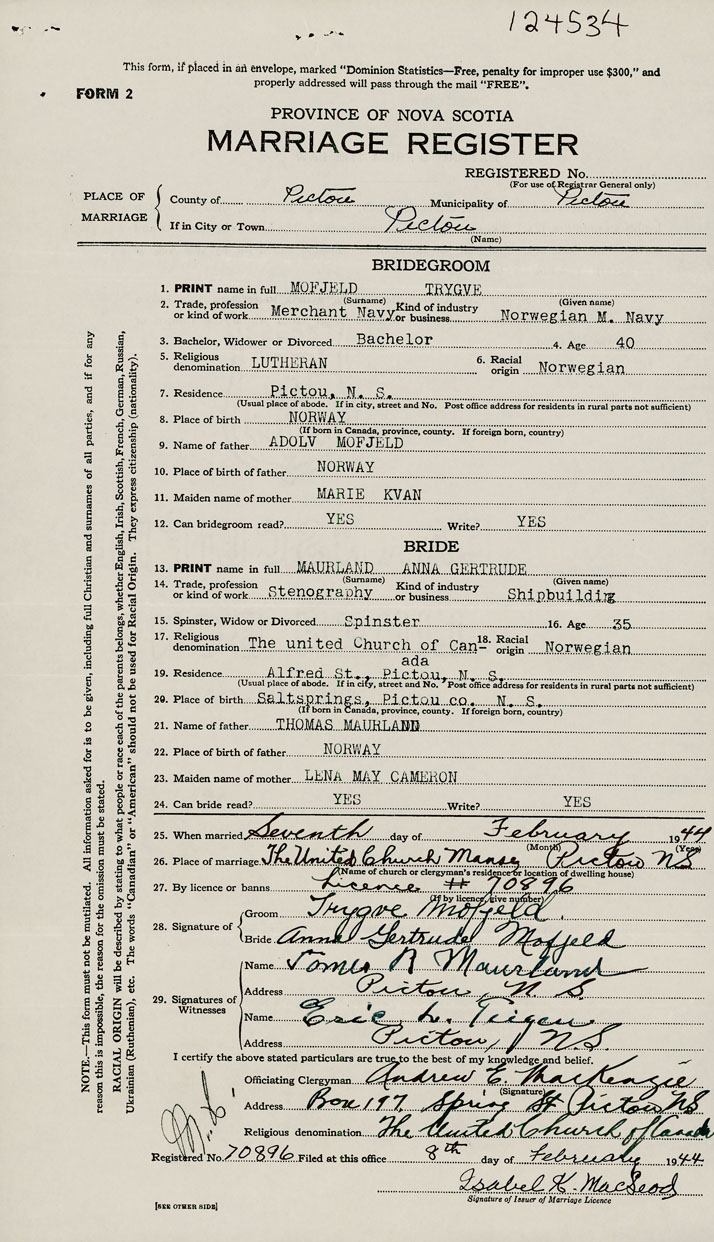 124534
This form, if placed in an envelope, marked "Dominion Statistics—Free, penalty for improper use $300," and
properly addressed will pass through the mail "FREE".
FORM 2
PROVINCE OF NOVA SCOTIA
MARRIAGE REGISTER
REGISTERED No.
(For use of Registrar General only)
PLACE OF MARRIAGE
County of Pictou Municipality of Pictou
If in City or Town Pictou
(Name)
BRIDEGROOM
1. PRINT name in full MOFJELD TRYGVE
(Surname) (Given name)
2. Trade, profession or kind of work Merchant Navy Kind of industry or business Norwegian M. Navy
3. Bachelor, Widower or Divorced Bachelor 4. Age 40
5. Religious denomination LUTHERAN 6. Racial origin Norwegian
7. Residence Pictou, N. S.
(Usual place of abode. If in city, street and No. Post office address for residents in rural parts not sufficient)
8. Place of birth NORWAY
(If born in Canada, province, county. If foreign born, country)
9. Name of father ADOLV MOFJELD
10. Place of birth of father NORWAY
11. Maiden name of mother MARIE KVAN
12. Can bridegroom read? YES Write? YES
BRIDE
13. PRINT name in full MAURLAND ANNA GERTRUDE
(Surname) (Given name)
14. Trade, profession or kind of work Stenography Kind of industry or business Shipbuilding
15. Spinster, Widow or Divorced Spinster 16. Age 35
17. Religious denomination The united Church of Can- 18. Racial origin Norwegian
ada
19. Residence Alfred St., Pictou, N. S.
(Usual place of abode. If in city, street and No. Post office address for residents in rural parts not sufficient)
20. Place of birth Saltsprings, Pictou co. N. S.
(If born in Canada, province, county. If foreign born, country)
21. Name of father THOMAS MAURLAND
22. Place of birth of father NORWAY
23. Maiden name of mother LENA MAY CAMERON
24. Can bride read? YES Write? YES
25. When married Seventh day of February 1944
(Month) (Year)
26. Place of marriage The United Church Manse Pictou NS
(Name of church or clergyman's residence or location of dwelling house)
27. By licence or banns Licence # 70896
(If by licence, give number)
28. Signature of
Groom Trygve Mofjeld.
Bride Anna Gertrude Mofjeld
29. Signatures of Witnesses
Name James R Maurland
Address Pictou, N. S.
Name Eric L. Teigen
Address Pictou, N.S.
I certify the above stated particulars are true to the best of my knowledge and belief.
Officiating Clergyman Andrew E. MacKenzie
(Signature)
Address Box 197, Spring St Pictou NS
Religious denomination The United Church of Canada
Registered No. 70896 Filed at this office 8th day of February 1944
Isabel K. MacLeod
Signature of Issuer of Marriage Licence
[SEE OTHER SIDE]
NOTE.—This form must not be mutilated. All information asked for is to be given, including full Christian and surnames of all parties, and if for any
reason this is impossible, the reason for the omission must be stated.
RACIAL ORIGIN will be described by stating to what people or race each of the parents belongs, whether English, Irish, Scottish, French, German, Russian,
Ukrainian (Ruthenian), etc. The words "Canadian" or "American" should not be used for Racial Origin. They express citizenship (nationality).